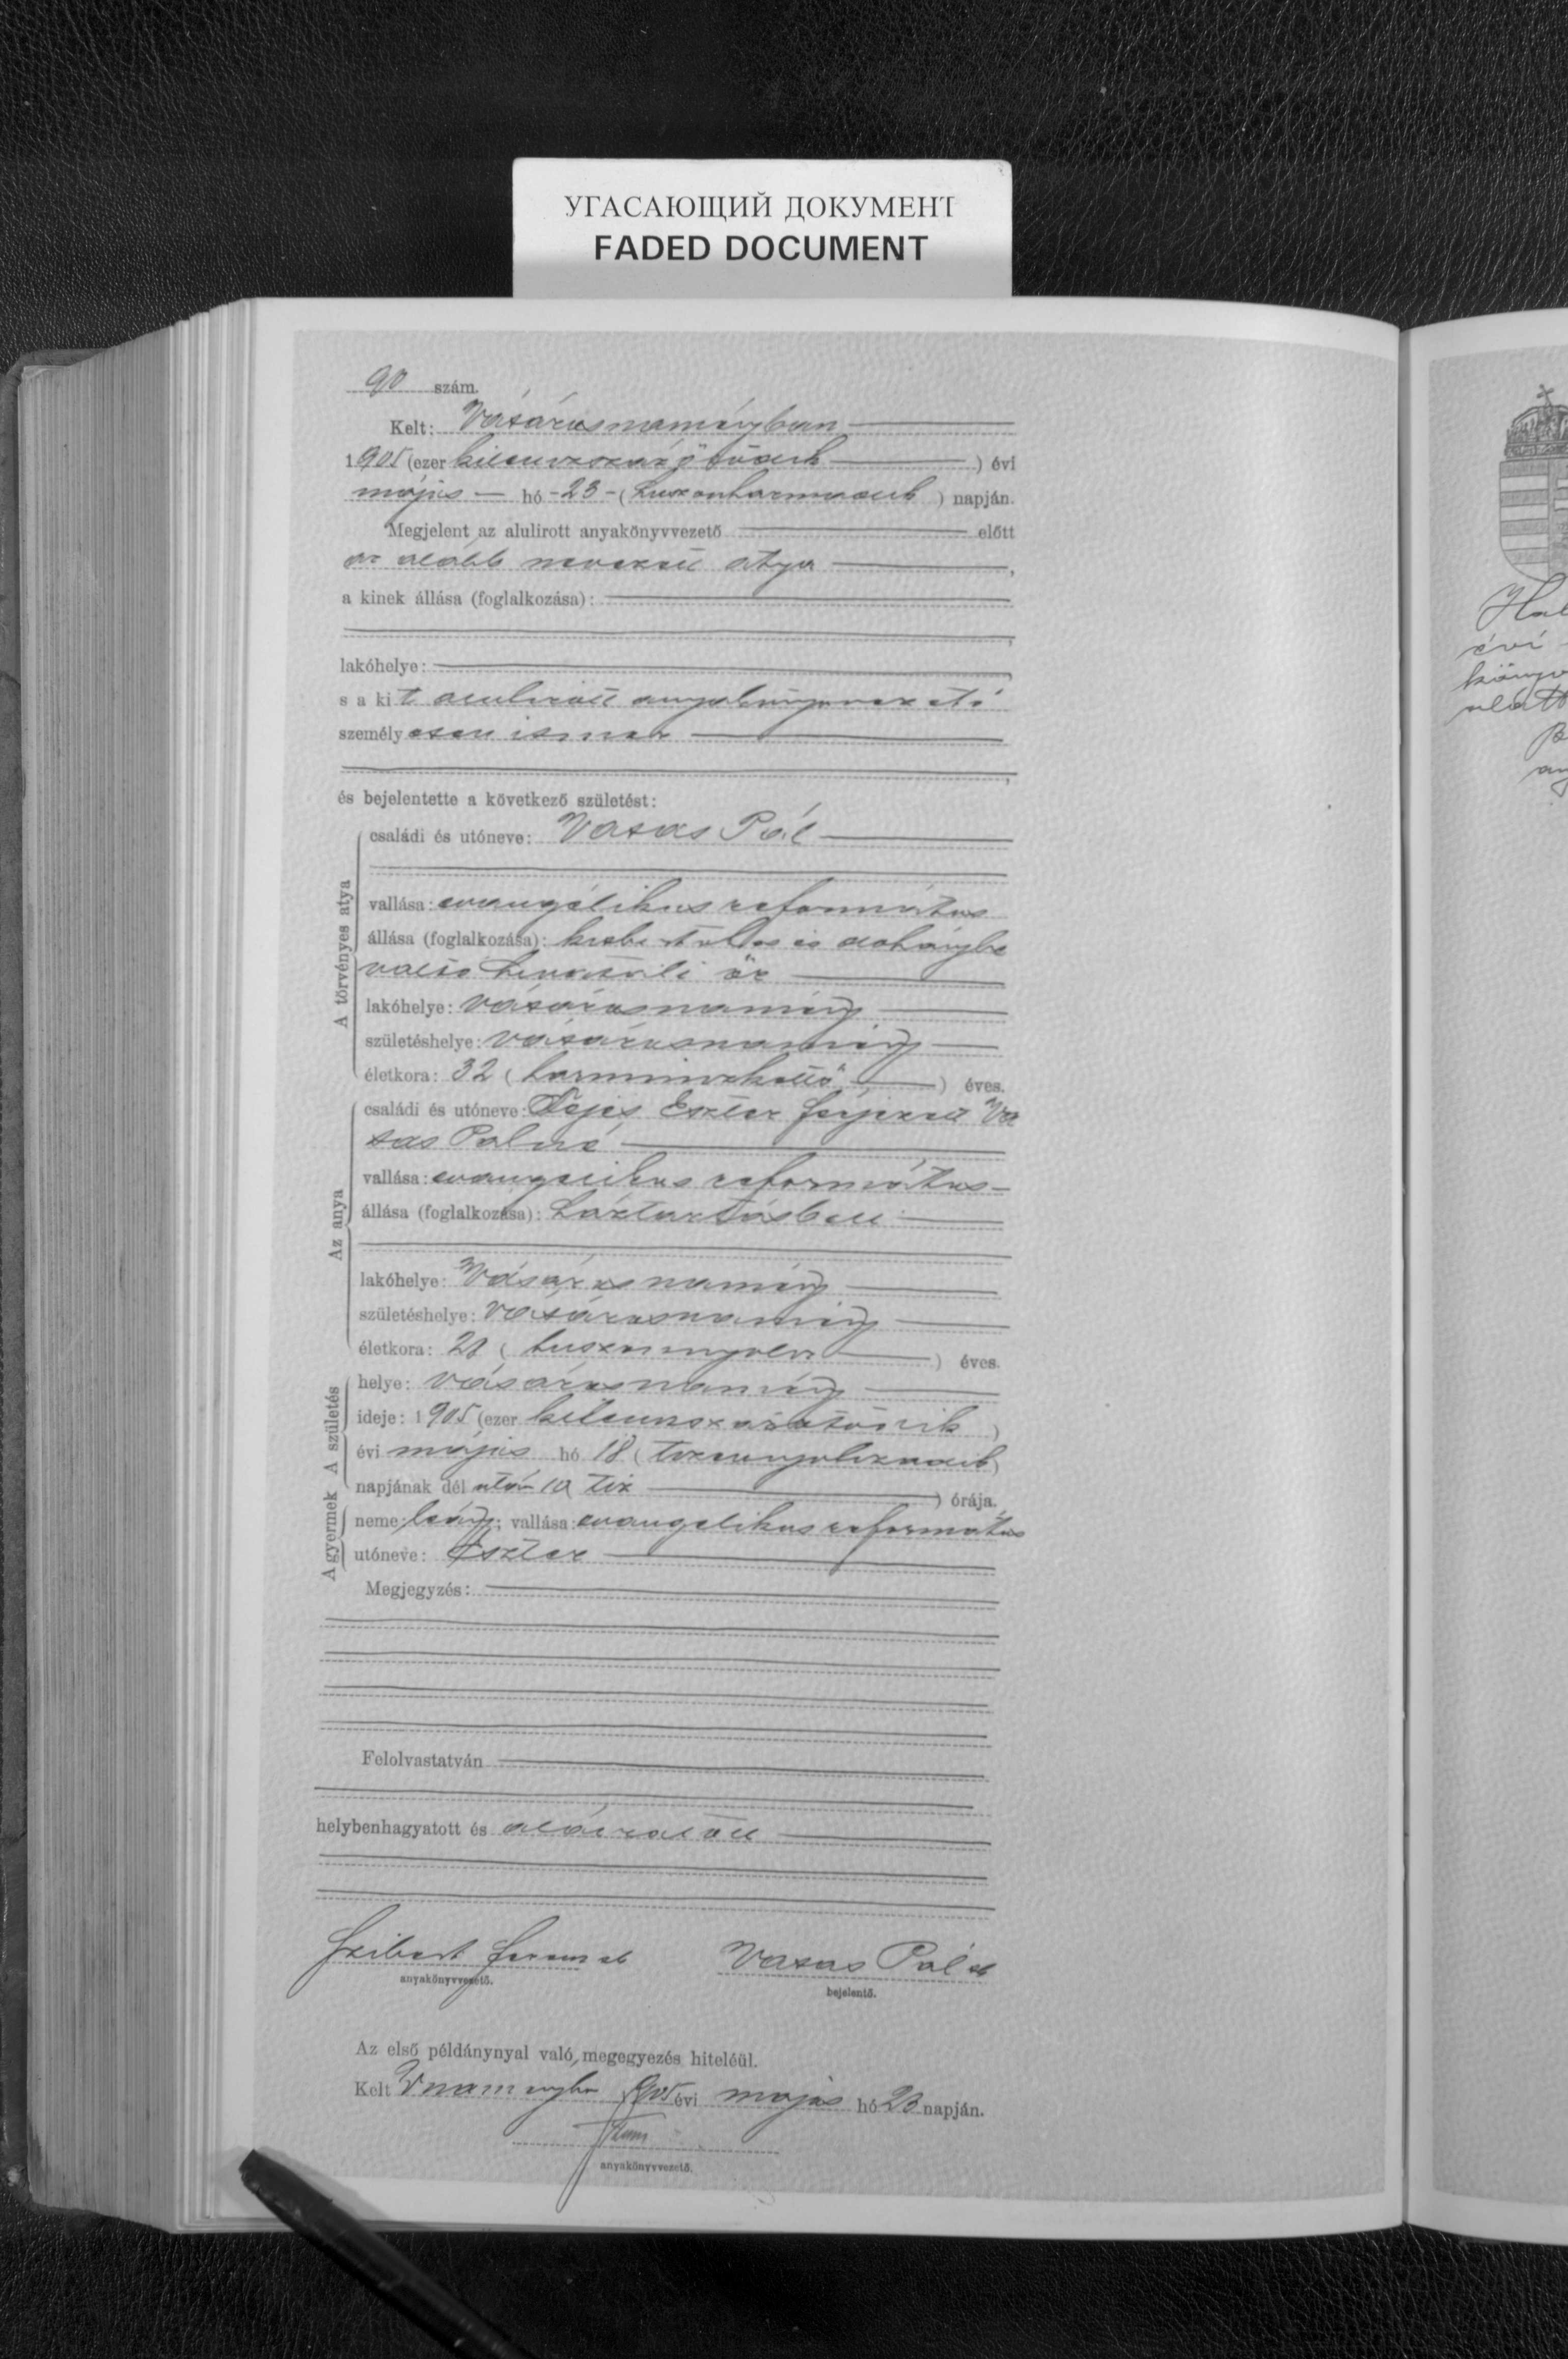 УГАСАЮЩИЙ ДОКУМЕНТ
FADED DOCUMENT
90 szám.
Kelt: Vásárosnaményban
1905 (ezer kilenczszáz ötödik) évi
május hó -23- (huszonharmadik) napján.
Megjelent az alulirott anyakönyvvezető előtt
az alább nevezett atya,
a kinek állása (foglalkozása):
lakóhelye:
s a kit alulirott anyakönyvvezető
személyesen ismer
és bejelentette a következő születést:
A törvényes atya
családi és utóneve: Vasas Pál
vallása: evangélikus református
állása (foglalkozása): és dohánybe
váltó hivatali őr
lakóhelye: Vásárosnamény
születéshelye: Vásárosnamény
életkora: 32 (harminczkettő) éves.
Az anya
családi és utóneve: Eszter férjezett Va
sas Pálné
vallása: evangelikus református
állása (foglalkozása): háztartásbeli
lakóhelye: Vásárosnamény
születéshelye: Vásárosnamény
életkora: 28 (huszonnyolcz) éves.
A születés
helye: Vásárosnamény
ideje: 1905 (ezer kilenczszázötödik)
évi május hó 18 (tizennyolczadik)
napjának dél után 10 tiz) órája.
A gyermek
neme: leány; vallása: evangelikus református
utóneve: Eszter
Megjegyzés:
Felolvastatván
helybenhagyatott és aláiratott
Ferencz sk Vasas Pál sk
anyakönyvvezető. bejelentő.
Az első példánynyal való megegyezés hiteléül.
Kelt Vnaményba 1905 évi május hó 23 napján.
anyakönyvvezető.
Hal
évi
könyv
alatt